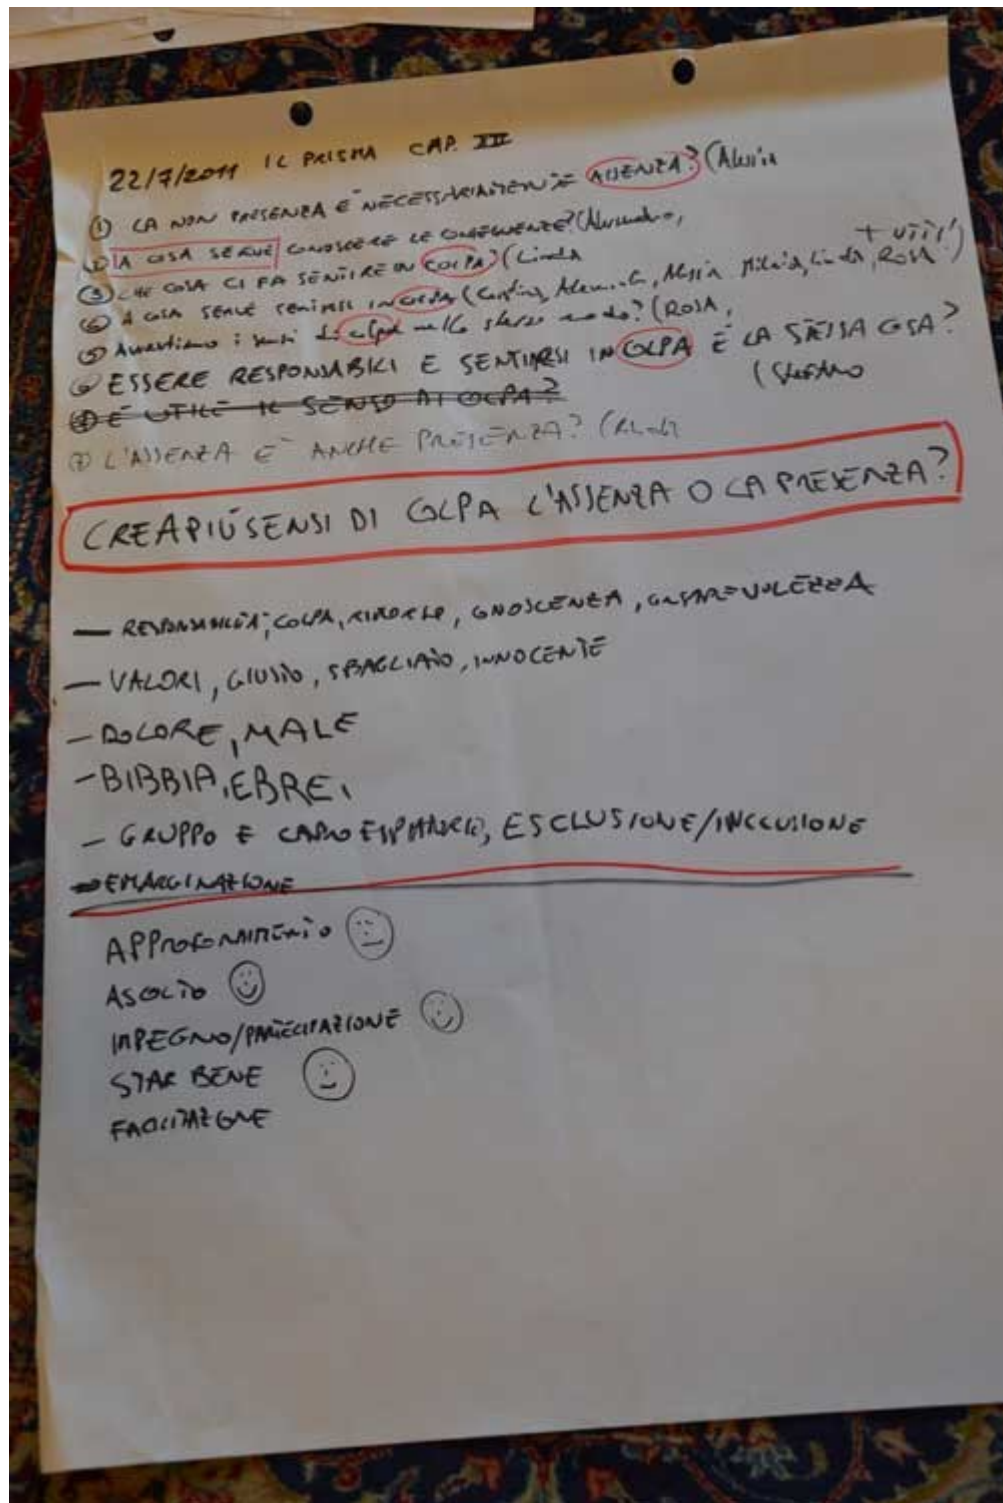 22/7/2011 IL PRISMA CAP. XII
① LA NON PRESENZA È NECESSARIAMENTE ASSENZA? (Alessia
② A COSA SERVE CONOSCERE LE CONSEGUENZE? (Alessandro,
③ CHE COSA CI FA SENTIRE IN COLPA? (Linda
④ A COSA SERVE SENTIRSI IN COLPA (Alessia, Linda, ROSA + TUTTI!)
⑤ Avvertiamo i sensi di colpa nello stesso modo? (ROSA,
⑥ ESSERE RESPONSABILI E SENTIRSI IN COLPA È LA STESSA COSA?
(STEFANO
⑦ È UTILE IL SENSO DI COLPA?
⑦ L'ASSENZA È ANCHE PRESENZA? (
CREA PIÙ SENSI DI COLPA L'ASSENZA O LA PRESENZA?
— RESPONSABILITÀ, COLPA, RIMORSO, CONOSCENZA, CONSAPEVOLEZZA
— VALORI, GIUSTO, SBAGLIATO, INNOCENTE
- DOLORE, MALE
- BIBBIA, EBREI,
- GRUPPO E CAPRO ESPIATORIO, ESCLUSIONE/INCLUSIONE
- EMARGINAZIONE
APPROFONDIMENTO
ASCOLTO
IMPEGNO/PARTECIPAZIONE
STAR BENE
FACILITAZIONE